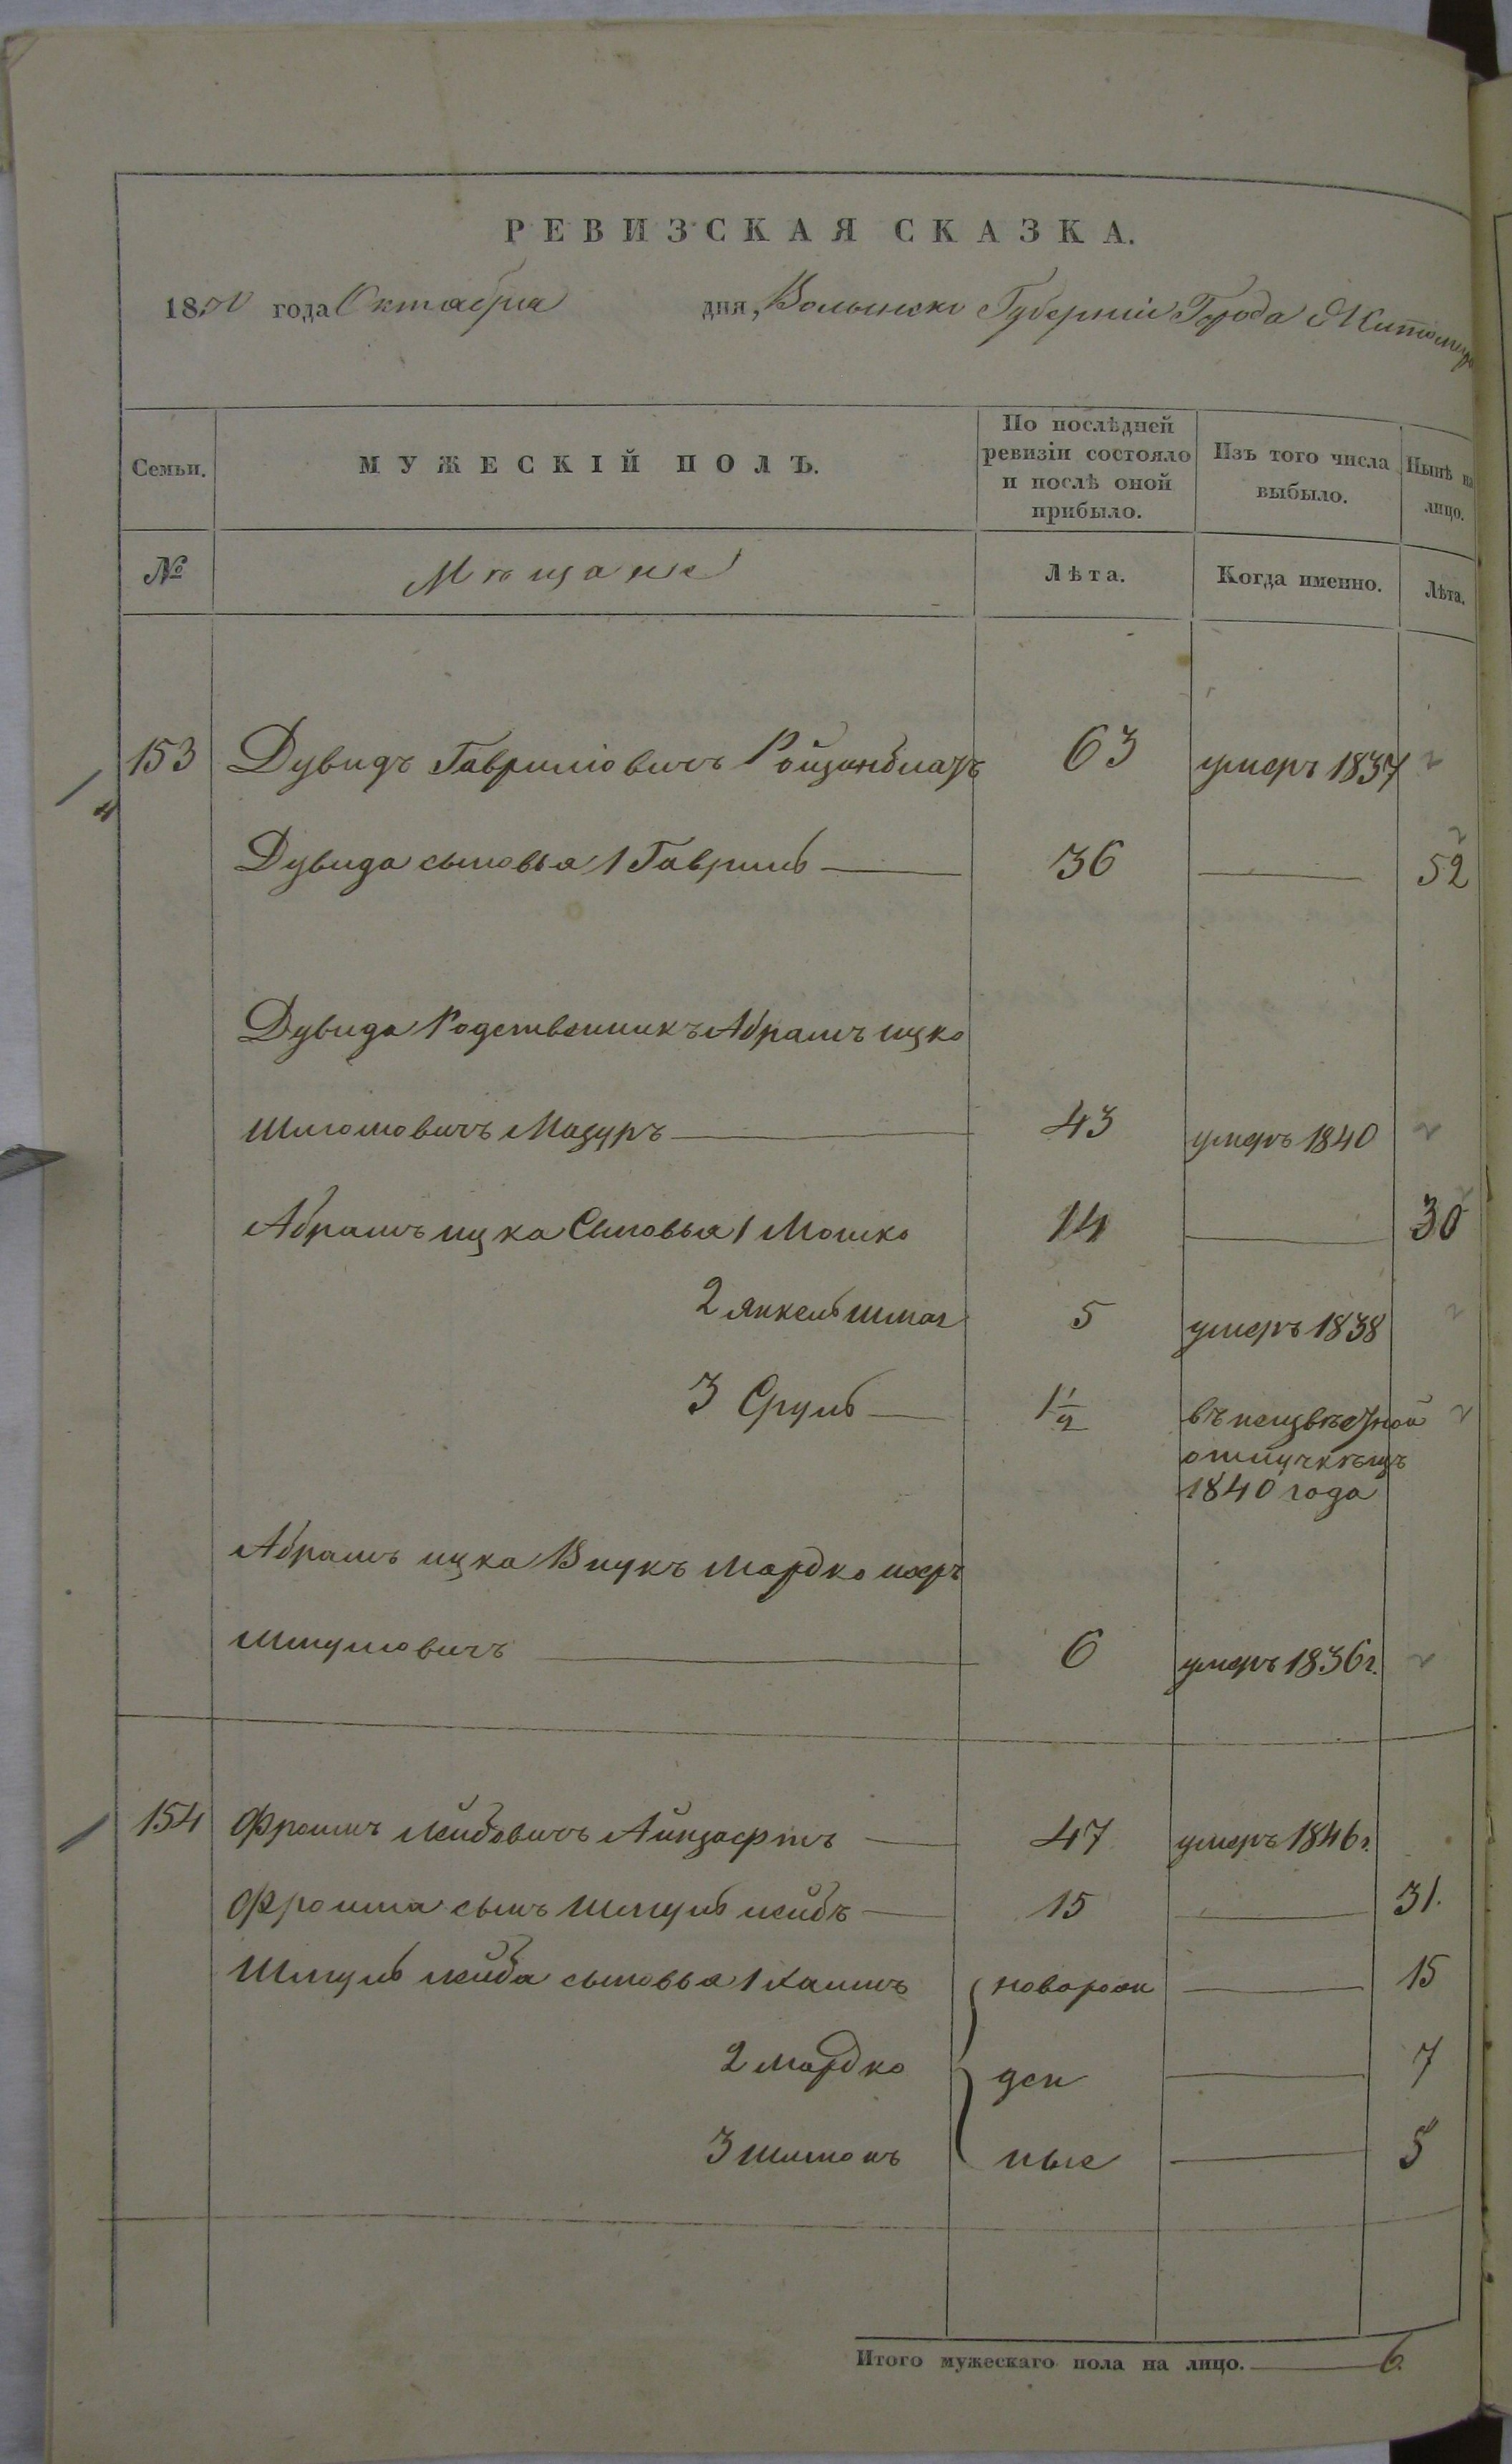 РЕВИЗСКАЯ СКАЗКА.
1850 года Октября дня, Волынской Губерніи Города Житомира
Семьи. МУЖЕСКІЙ ПОЛЪ. По послѣдней ревизіи состояло и послѣ оной прибыло. Изъ того числа выбыло. Нынѣ на лицо.
№ Мещане Лѣта. Когда именно. Лѣта.
153 Дувидъ Гавриловичъ Ройзенблатъ 63 умеръ 1837
Дувида сыновья 1 Гавриль 36 52
Дувида Родственникъ Абрамъ ицко
Шломовичъ Мазуръ 43 умеръ 1840
Абрамъ ицка Сыновья 1 Мошко 14 30
2 Янкель шмая 5 умеръ 1838
3 Сруль 1 1/2 въ неизвѣстной
отлучкѣ съ
1840 года
Абрамъ ицка Внукъ Мордко иосъ
Шмулювичъ 6 умеръ 1836 г.
154 Фроимъ Лейбовичъ Айнзафтъ 47 умеръ 1846 г.
Фроима сынъ Шмуль лейбъ 15 31.
Шмуль лейба сыновья 1 Хаимъ новорож 15
2 Мордко ден 7
3 Шимонъ ные 5
Итого мужескаго пола на лицо. 6.